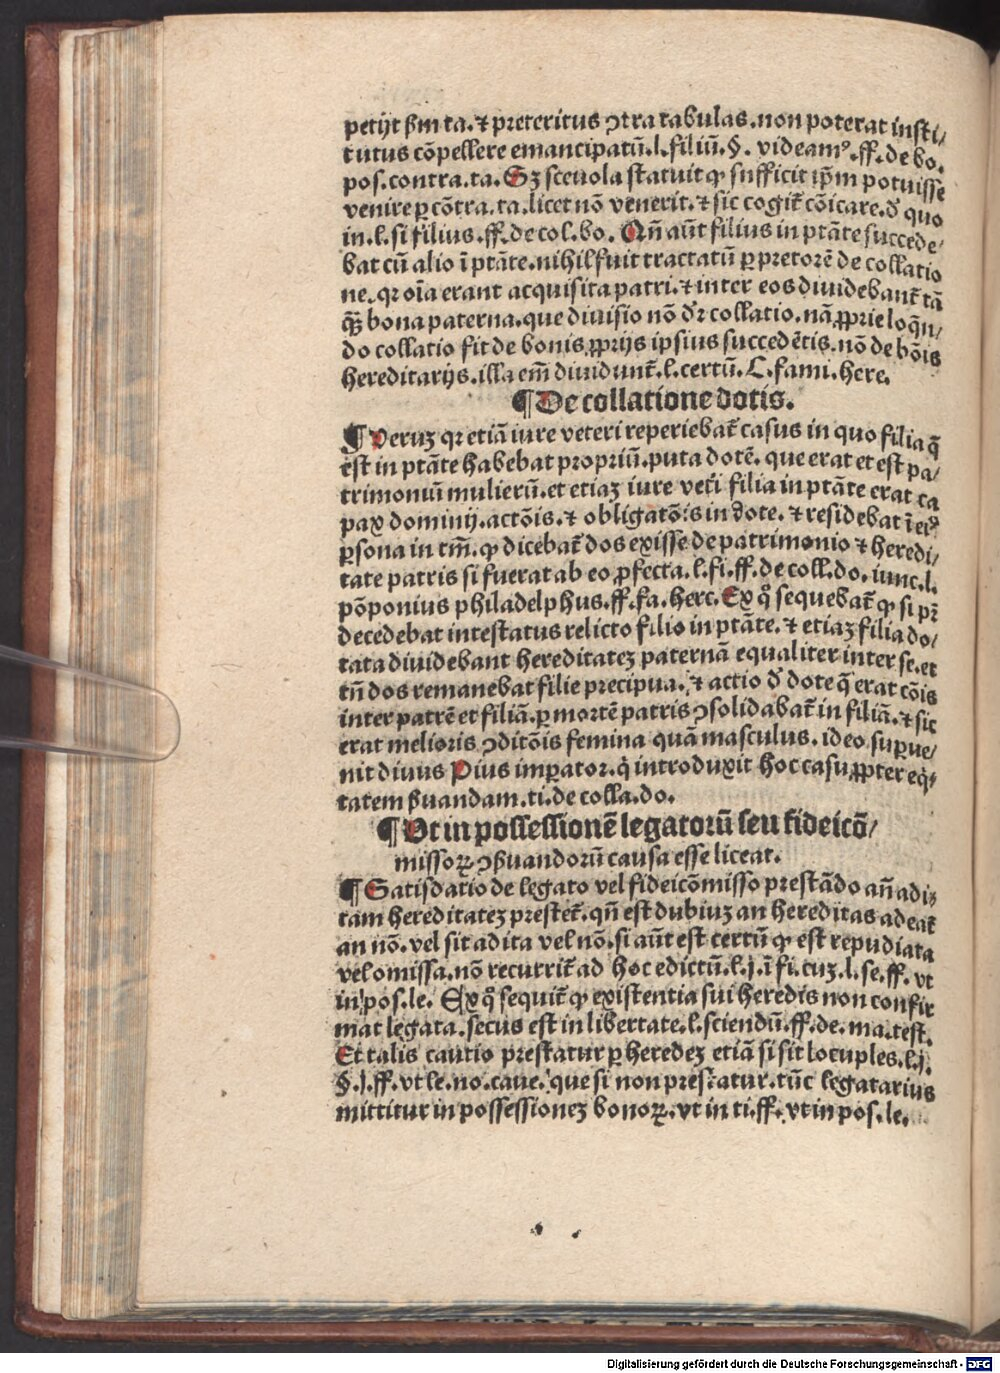 petijt ẞm ta.⁊ preteritus ꝯtra tabulas.non poterat insti/
tutus cõpellere emancipatũ.l.filiũ.§. videamꝰ.ff.de bo.
pos.contra.ta.Sꝫ scevola statuit ꝙ sufficit ip̃m potuisse
venire ꝑ cõtra.ta.licet nõ venerit.⁊ sic cogit̃ cõicare.đ quo
in.l.si filius.ff.de col.bo. Qñ aũt filius in ptãte succede/
bat cũ alio ĩ ptãte.nihil fuit tractatũ ꝑ pretorẽ de collatio
ne.qꝛ oĩa erant acquisita patri.⁊ inter eos diuidebant̃ tã
qᷓꝫ bona paterna.que diuisio nõ dꝛ̃ collatio.nã ꝓprie loq̃n/
do collatio fit de bonis ꝓprijs ipsius succedẽtis.nõ de bõis
hereditarijs.illa em̃ diuidunt̃.l.certũ.C.fami.here.
¶De collatione dotis.
¶Veruꝫ qꝛ etiã iure veteri reperiebat̃ casus in quo filia q̃
est in ptãte habebat propriũ.puta dotẽ. que erat et est pa/
trimoniũ mulierũ.et etiaꝫ iure vet̃i filia in ptãte erat ca
pax dominij.actõis.⁊ obligatõis in dote. ⁊ residebat ĩ eiꝰ
ꝑsona in tm̃.ꝙ dicebat̃ dos exisse de patrimonio ⁊ heredi/
tate patris si fuerat ab eo ꝓfecta.l.fi.ff.de coll.do.iunc.l.
põponius philadelphus.ff.fa.herc.Ex qͦ sequebat̃ ꝙ si pꝛ̃
decedebat intestatus relicto filio in ptãte.⁊ etiaꝫ filia do/
tata diuidebant hereditateꝫ paternã equaliter inter se.et
tñ dos remanebat filie precipua.⁊ actio đ dote q̃ erat cõis
inter patrẽ et filiã.ꝑ mortẽ patris ꝯsolidabat̃ in filiã.⁊ sic
erat melioris ꝯditõis femina quã masculus. ideo suꝑue/
nit diuus Pius imꝑator.q̇ introduxit hoc casu ꝓpter eq̇/
tatem ẞuandam.ti.de colla.do.
¶Ut in possessionẽ legatorũ seu fideicõ/
missoꝝ ꝯẞuandorũ causa esse liceat.
¶Satisdatio de legato vel fideicõmisso prestãdo añ adi/
tam hereditateꝫ prestet̃.qñ est dubiuꝫ an hereditas adeat̃
an nõ.vel sit adita vel nõ.si aũt est certũ ꝙ est repudiata
vel omissa.nõ recurrit̃ ad hoc edictũ.l.j.ĩ fi.cuꝫ.l.se.ff.vt
in pos.le. Ex qͦ sequit̃ ꝙ existentia sui heredis non confir
mat legata.secus est in libertate.l.sciendũ.ff.de.ma.test.
Et talis cautio prestatur ꝑ heredeꝫ etiã si sit locuples.l.j.
§.j.ff.vt le.no.caue.que si non prestatur.tũc legatarius
mittitur in possessioneꝫ bonoꝝ.vt in ti.ff.vt in pos.le.
Digitalisierung gefördert durch die Deutsche Forschungsgemeinschaft - DFG